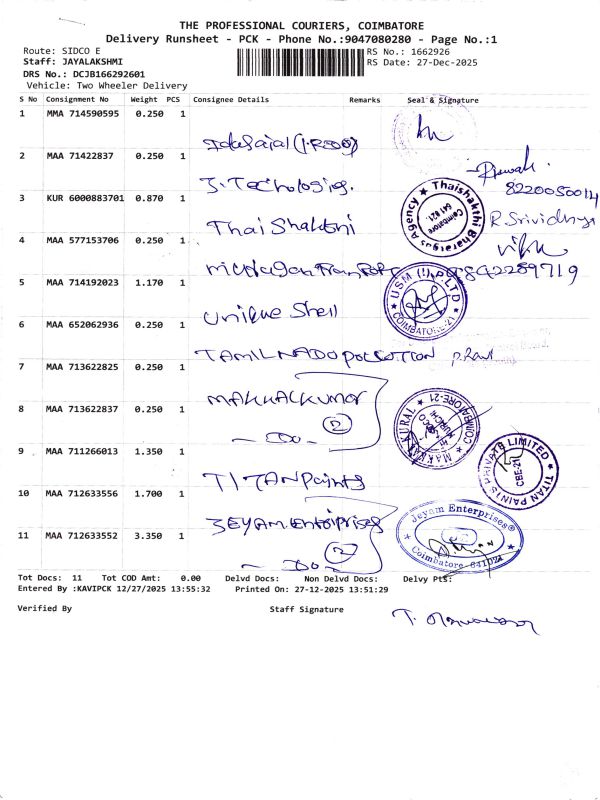 THE PROFESSIONAL COURIERS, COIMBATORE
Delivery Runsheet - PCK - Phone No.:9047080280 - Page No.:1
Route: SIDCO E
RS No.: 1662926
Staff: JAYALAKSHMI
RS Date: 27-Dec-2025
DRS No.: DCJB166292601
Vehicle: Two Wheeler Delivery
S No Consignment No Weight PCS Consignee Details Remarks Seal & Signature
1 MMA 714590595 0.250 1
2 MAA 71422837 0.250 1
8220050014
3 KUR 6000883701 0.870 1 Thai Shakthi
Thaishakthi Bharatgas Agency ★ Coimbatore 641 021. ★
R. Srividhya
4 MAA 577153706 0.250 1
9842289719
5 MAA 714192023 1.170 1 Unique Shell
USM (I) P LTD ★ COIMBATORE-21 ★
6 MAA 652062936 0.250 1 TAMILNADO
7 MAA 713622825 0.250 1 MAKKALKUMOR
2
8 MAA 713622837 0.250 1 - Do -
MAKKAL KURAL ★ COIMBATORE-21 ★ SIDCO
9 MAA 711266013 1.350 1 TITAN Paints
TITAN PAINTS PRIVATE LIMITED ★ CBE-21
10 MAA 712633556 1.700 1 JEYAM. Enteiprises
2
Jeyam Enterprises® ★ Coimbatore - 641021 ★
11 MAA 712633552 3.350 1 - Do -
Tot Docs: 11 Tot COD Amt: 0.00 Delvd Docs: Non Delvd Docs: Delvy Pts:
Entered By :KAVIPCK 12/27/2025 13:55:32 Printed On: 27-12-2025 13:51:29
Verified By Staff Signature